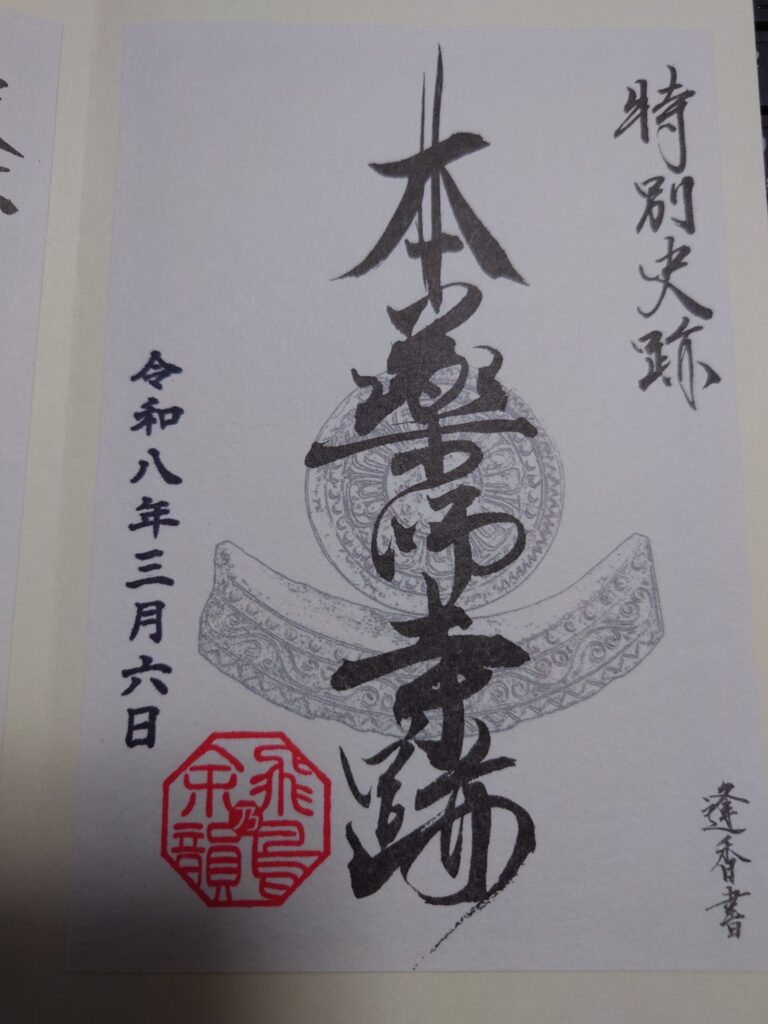 特別史跡
本薬師寺跡
令和八年三月六日
飛鳥乃余韻
逢香書